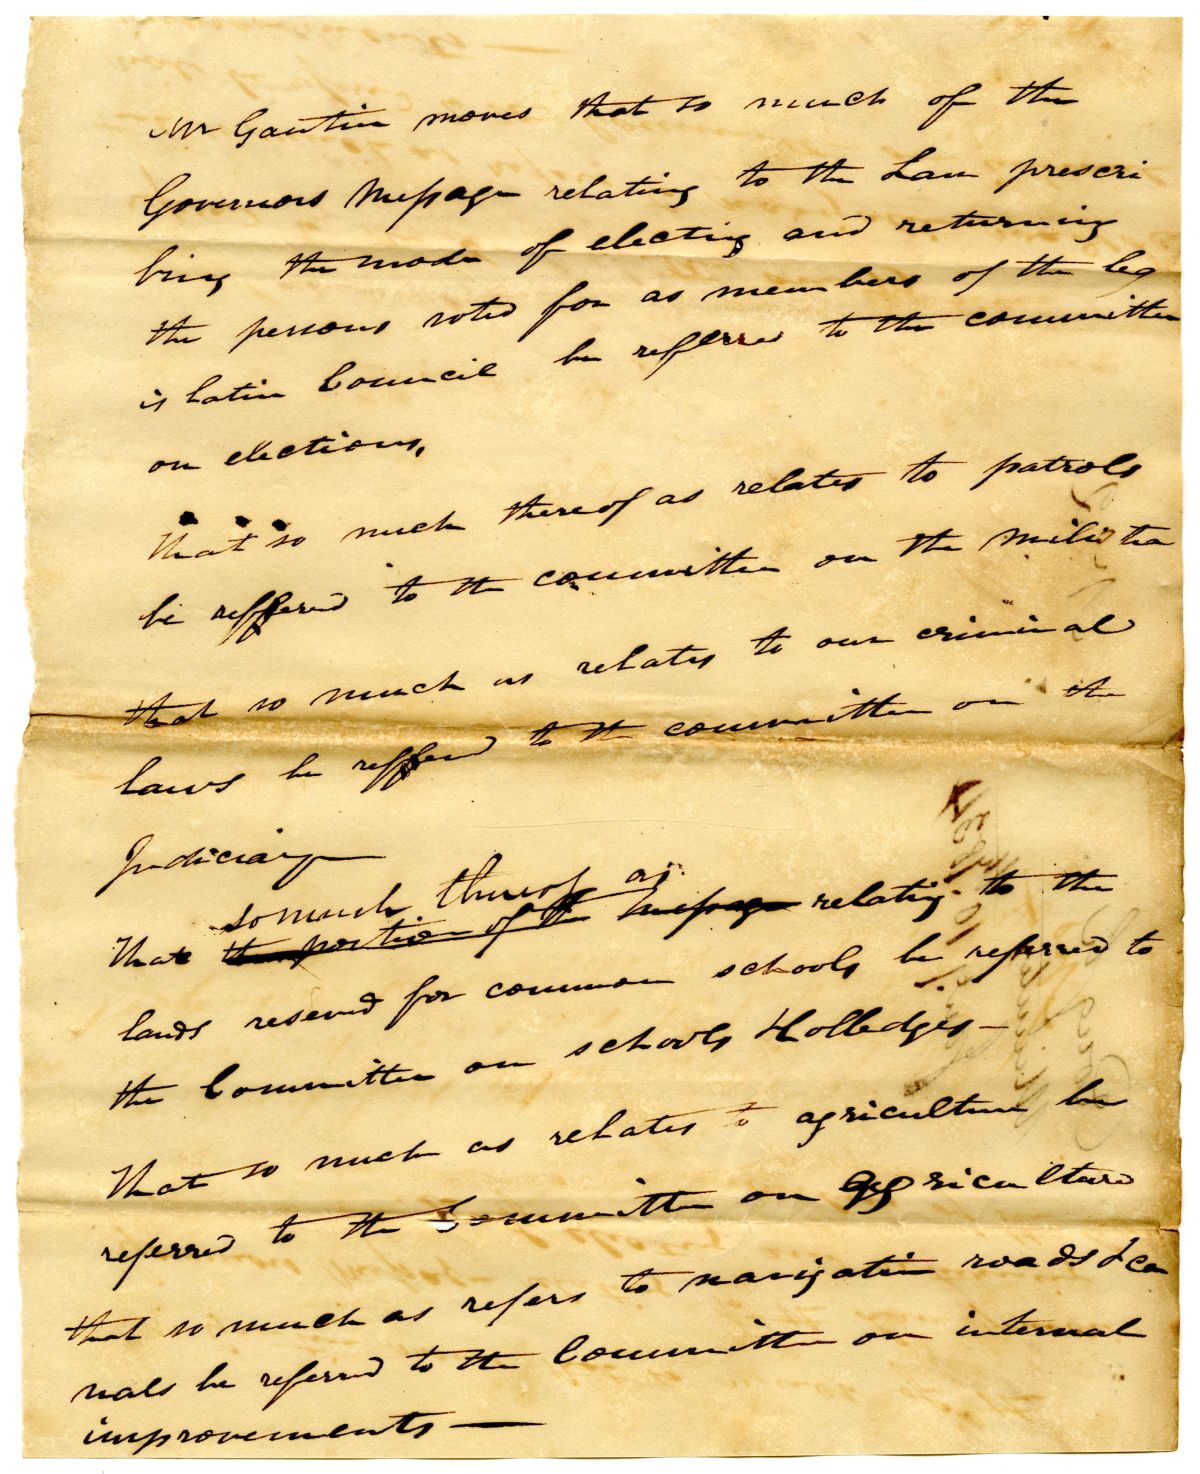 Mr Gautier moves that so much of the
Governors Message relating to the Law prescri
bing the mode of electing and returning
the persons voted for as members of the leg
islative Council be referred to the committee
on elections.
That so much thereof as relates to patrols
be reffered to the committee on the militia
that so much as relates to our criminal
laws be reffered to the committee on the
Judiciary
so much thereof as
That the portion of the message relating to the
lands reserved for common schools be referred to
the Committee on schools & Colledges —
That so much as relates to agriculture be
referred to the Committee on agriculture
that so much as refers to navigation roads & ca
nals be referred to the Committee on internal
improvements —